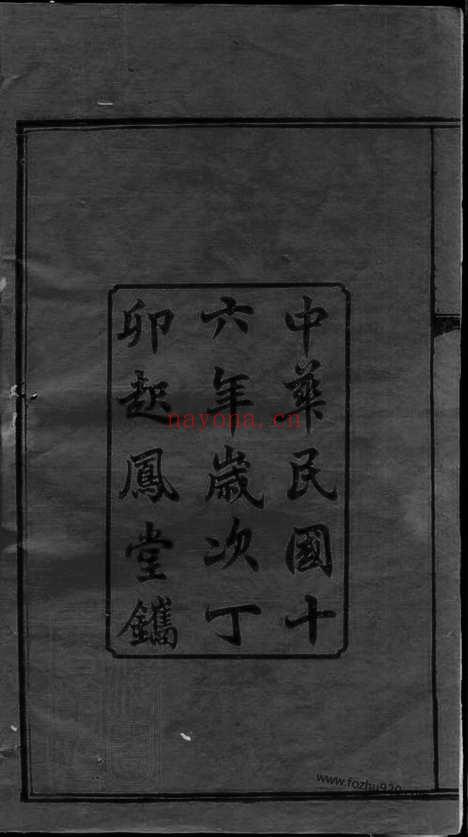 中華民國十
六年歲次丁
卯起鳳堂鐫
nayona.cn